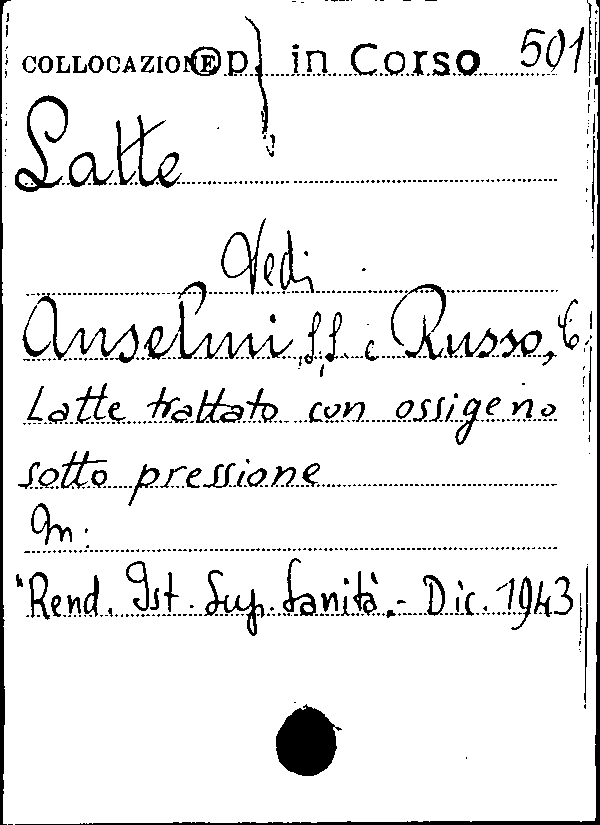 COLLOCAZIONE Op. in Corso 501
Latte
Vedi
Anselmi, S.S. e Russo, C.
Latte trattato con ossigeno
sotto pressione
In:
"Rend. Ist. Sup. Sanità.- Dic. 1943